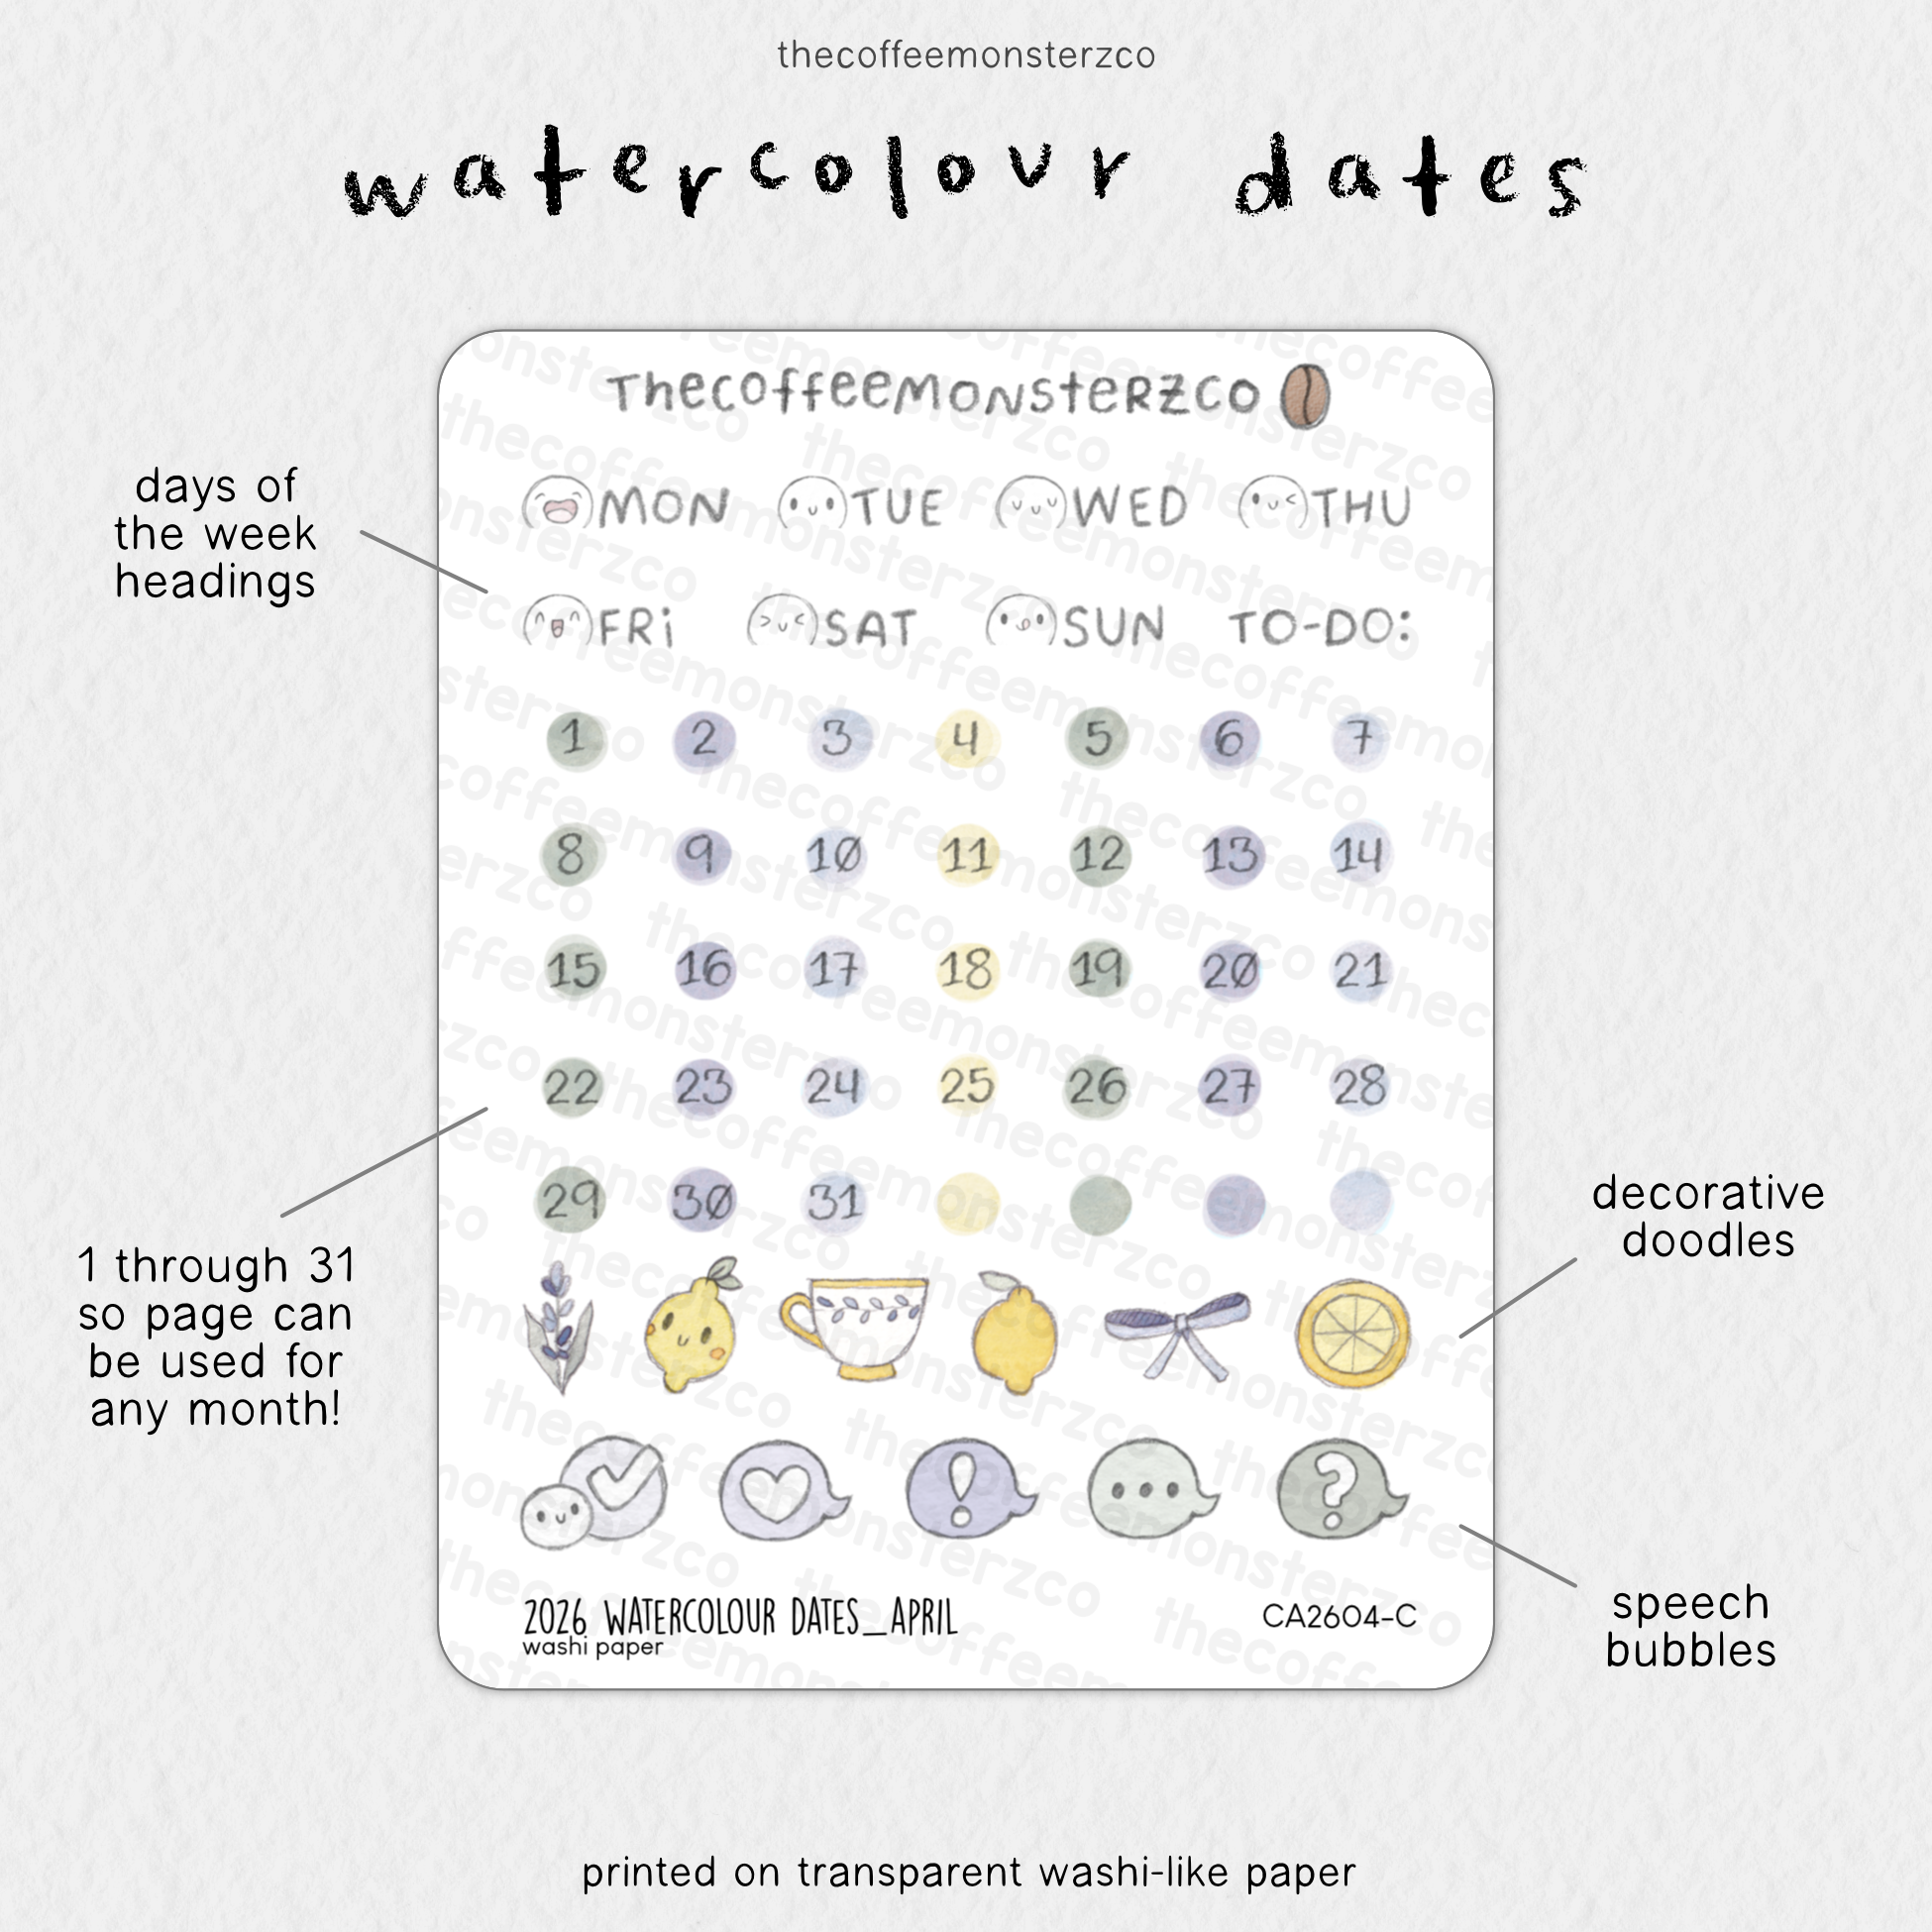 thecoffeemonsterzco
watercolour dates
THecoffeeMONsteRZco
MON TUE WED THU
FRi SAT SUN TO-DO:
1 2 3 4 5 6 7
8 9 10 11 12 13 14
15 16 17 18 19 20 21
22 23 24 25 26 27 28
29 30 31
! ... ?
2026 WATERCOLOUR DATES_APRIL
washi paper
CA2604-C
days of
the week
headings
1 through 31
so page can
be used for
any month!
decorative
doodles
speech
bubbles
printed on transparent washi-like paper